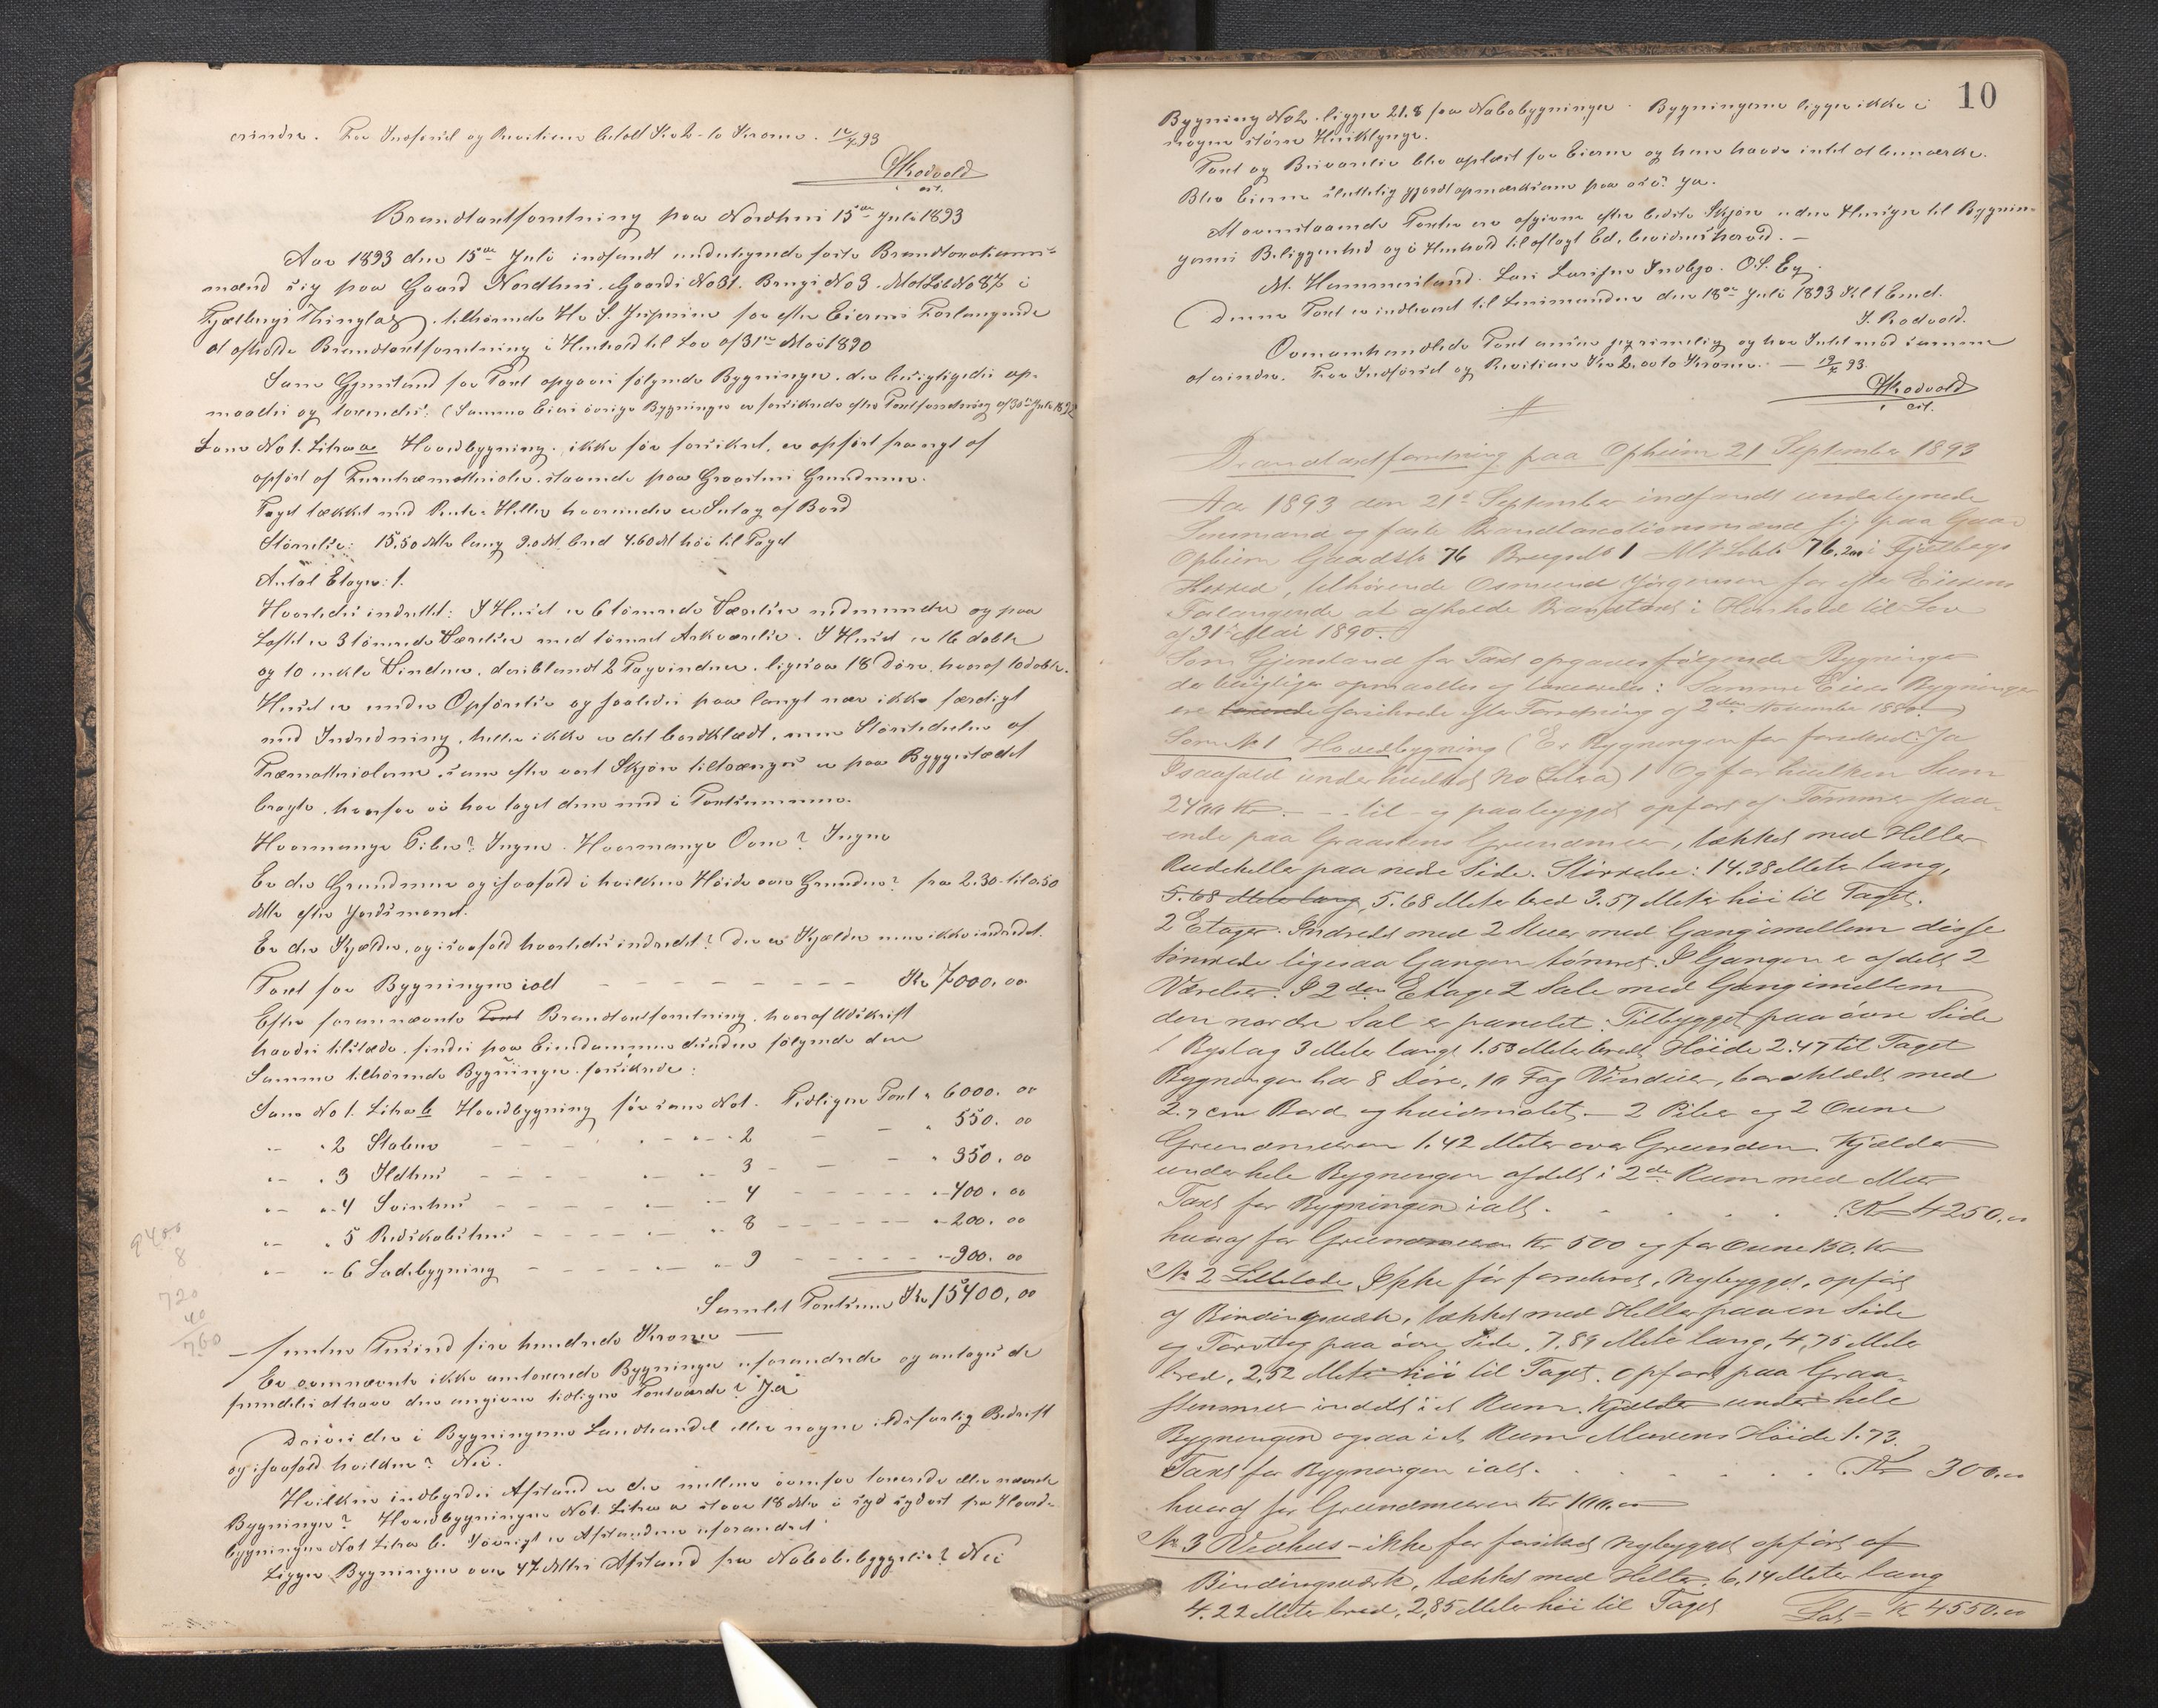 erindre. For Indførsel og Revision betalt Kr 2 - to Kroner. 12/7 93
JRodvold
cst.
Brandtaxtforretning paa Nordhuus 15de Juli 1893
Aar 1893 den 15de Juli indfandt undertegnede faste Brandtaxations-
mænd sig paa Gaard Nordhuus. Gaards No 31. Brugs No 3. Mat Løb No 87 i
Fjelbergs Thinglag, tilhørende H. S. for efter Eierens Forlangende
at afholde Brandtaxtforretning i Henhold til Lov af 31te Mai 1890
Som Gjenstand for Taxt opgaves følgende Bygninger, der besigtigedes op-
maaltes og taxeredes: (Samme Eiers øvrige Bygninger er forsikrede efter Taxtforretning af 30te Juli 1892
Som No 1. Litra a Hovedbygning. ikke før forsikret, er opført fra nyt af
opført af Furutræmaterialer staaende paa Graasteens Grundmur.
Taget tækket med Rude Heller hvorunder er Sutag af Bord
Størrelse: 15.50 Mtr lang 9.0 M. bred 4.60 M høi til Taget
Antal Etager: 1.
Hvorledes indrettet: I Huset er 6 tømrede Værelser nedenunder og paa
Loftet er 3 tømrede Værelser med tømret Arkværelse. I Huset er 16 doble
og 10 enkle Vinduer, deriblandt 2 Tagvinduer, ligesaa 18 Døre, hvoraf 10 doble.
Huset er under Opførelse og saaledes paa langt nær ikke færdigt
med Indredning, heller ikke er det bordklædt, men Størstedelen af
Træmaterialerne, som efter vort Skjøn tiltrænges er paa Byggestedet
bragte, hvorfor vi har taget dem med i Taxtsummen.
Hvormange Piber? Ingen. Hvormange Ovne? Ingen
Er der Grundmur og isaafald i hvilken Høide over Grunden? fra 2.30 til 0.50
Mtr efter Jordsmonet.
Er der Kjælder, og isaafald hvorledes indredet? Der er Kjælder men ikke indredet.
Taxt for Bygningen ialt - - - - - - - - - Kr 7000.00
Efter forannævnte Taxt Brandtaxtforretning, hvoraf Udskrift
havdes tilstæde, findes paa Eiendommen desuden følgende den
Samme tilhørende Bygninger forsikrede:
Som No 1. Litra b Hovedbygning før som No 1. Tidligere Taxt " 6000.00
" " 2 Stabur - - - - " 2 - - " 550.00
" " 3 Ildhus - - - - " 3 - - " 350.00
" " 4 Svinhus - - - - " 4 - - " 400.00
" " 5 Redskabshus - - - - " 8 - - " 200.00
" " 6 Ladebygning - - - - " 9 - - " 900.00
Samlet Taxtsum Kr 15400.00
9400
8
720
40
760
- femten Tusind fire hundrede Kroner -
Er ovennævnte ikke omtaxerede Bygninger uforandrede og antages de
fremdeles at have den angivne tidligere Taxtværdi? Ja
Drives der i Bygningerne Landhandel eller nogen ildsfarlig Bedrift
og isaafald hvilken? Nei.
Hvilken indbyrdes Afstand er der mellem ovenfor taxerede eller nævnte
Bygninger? Hovedbygningen No 1. Litra a staar 18 Mtr i syd sydost fra Hoved-
bygningen No 1 Litra b. Iøvrigt er Afstanden uforandret
Ligger Bygningen over 47 Mtrs Afstand fra Nabobebyggelse? Nei
10
Bygning No 2. ligger 21.8 fra Nabobygninger. Bygningerne ligger ikke i
nogen større Huusklynge.
Taxt og Beskrivelse blev oplæst for Eieren og han havde intet at bemærke.
Blev Eieren sluttelig gjort opmærksom paa ? Ja.
At ovenstaaende Taxter ere afgivne efter bedste Skjøn uden Hensyn til Bygnin-
gernes Beliggenhed og i Henhold til aflagt Ed, bevidnes herved. -
M. Hammersland. Lars Larsen Indbjo. O. S. Eg.
Denne Taxt er indleveret til Lensmanden den 18de Juli 1893 Kl. 1 Emd.
J. Rodvold.
Ovenomhandlede Taxt ansees rimelig og har Intet mod samme
at erindre. For Indførsel og Revision Kr 2. er to Kroner. - 19/7 93.
JRodvold
cst.
Brandtaxtforretning paa Opheim 21 September 1893
Aar 1893 den 21de September indfandt undertegnede
Lensmand og faste Brandtaxationsmænd sig paa Gaard
Opheim Gaards No 76 Brugs No 1 Mt Løb No 76. i Fjelbergs
Herred, tilhørende Osmund Jørgensen for efter Eierens
Forlangende at afholde Brandtaxt i Henhold til Lov
af 31te Mai 1890.
Som Gjenstand for Taxt opgaves følgende Bygninger
der besigtiges opmaaltes og taxeredes: Samme Eiers Bygninger
ere taxerede forsikrede efter Forretning af 2den November 1880.
Som No 1 Hovedbygning (Er Bygningen før forsikret? Ja
Isaafald under hvilket No (Litra) 1 Og for hvilken Sum
2400 Kr. - - til- og paabygget opført af Tømmer staa-
ende paa Graasteens Grundmur, tækket med Heller
Rudeheller paa nedre Side. Størrelse: 14.38 Meter lang,
5.68 Meter lang, 5.68 Meter bred 3.57 Meter høi til Taget.
2 Etager. Indredet med 2 Stuer med Gang imellem disse
tømrede ligesaa Gangen tømret. I Gangen er afdelt 2
Værelser. I 2den Etage 2 Sale med Gang imellem
den nordre Sal er panelet. Tilbygget paa øvre Side
1 Bislag 3 Meter langt 1.50 Meter bredt Høide 2.47 til Taget
Bygningen har 8 Døre, 10 Fag Vinduer, bordklædt med
2.7 cm Bord og hvidmalet. - 2 Piber og 2 Ovne
Grundmuren 1.42 Meter over Grunden Kjælder
under hele Bygningen afdelt i 2de Rum med Mur
Taxt for Bygningen ialt. . . . . . Kr 4250.00
hvoraf for Grundmuren Kr 500 og for Ovne 150. Kr
No 2 Lillelade Ikke før forsikret, Nybygget, opført
af Bindingsværk, tækket med Heller paa en Side
og Torvtag paa øvre Side, 7,89 Meter lang, 4,75 Meter
bred, 2,52 Meter høi til Taget. opført paa Graa-
stensmur inddelt i et Rum. Kjælder under hele
Bygningen ogsaa i et Rum Murens Høide 1.73.
Taxt for Bygningen ialt. . . . . . . Kr 300.00
hvoraf for Grundmuren Kr 100.00
No 3 Vedhus - ikke før forsikret Nybygget opført af
Bindingsværk, tækket med Heller, 6,14 Meter lang
4.22 Meter bred, 2,85 Meter høi til Taget
Lat = Kr 4550.00